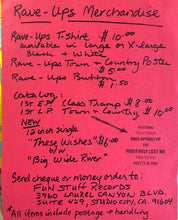 Rave-Ups Merchandise
Rave-Ups T-Shirt $10.00
available in Large or X-Large
Black & White
Rave-Ups Town & Country Poster
$5.00
Rave-Ups Button $1.50
Catalog:
1st EP Class Tramp $8.00
1st L.P. Town & Country $10.00
NEW
12 inch Single
"These Wishes" $6.00
b/w
"Big Wide River"
FEATURING
THE HIT SINGLES
RAVE-UP/SHUT-UP
AND
POSITIVELY LOST ME
FROM THE FILM
PRETTY IN PINK
Send cheque or money order to:
FUN STUFF RECORDS
3960 LAUREL CANYON BLVD.
SUITE #29, STUDIO CITY, CA. 91604
* All items include postage + handling